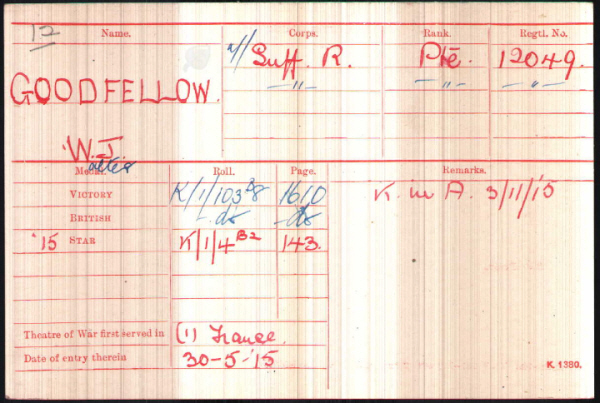 12 Name. Corps. Rank. Regtl. No.
GOODFELLOW. 7/ Suff. R. Pte. 12049.
—"— —"— —"—
W.J.
Medal. Roll. Page. Remarks.
VICTORY K/1/103 B8 1610 K. in A. 3/11/15
BRITISH —do —do
'15 STAR K/1/4 B2 143.
Theatre of War first served in (1) France.
Date of entry therein 30-5-'15
K. 1380.